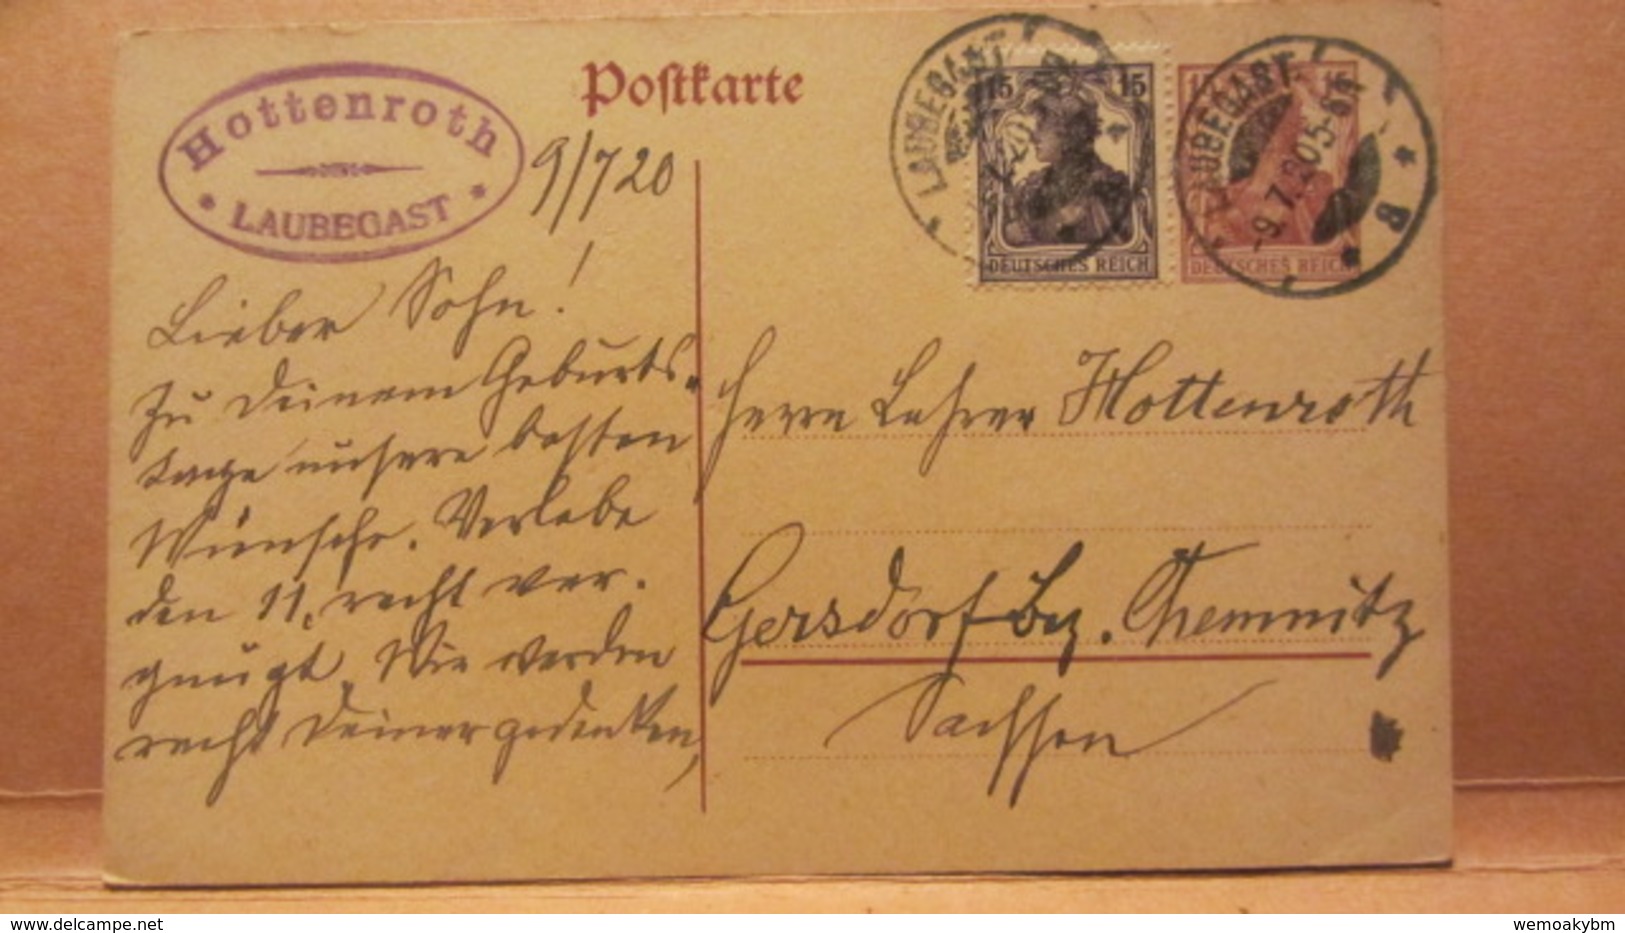 Hottenroth
* LAUBEGAST *
Postkarte
9/7 20
LAUBEGAST
15 15
DEUTSCHES REICH
LAUBEGAST.
-9.7.20 5-6N
* 8 *
15
DEUTSCHES REICH
Lieber Sohn!
Zu Deinem Geburts-
tage unsere besten
Wünsche. Verlebe
den 11. recht ver-
gnügt. Wir werden
recht Deiner gedenken,
Herrn Lehrer Hottenroth
Gersdorf Bez. Chemnitz
Sachsen
DELCAMPE
wemoakybm